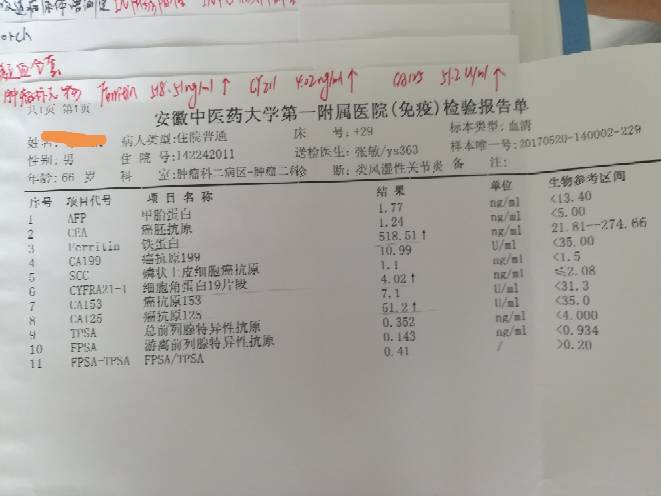 orch
肿瘤标志物 Ferritin 518.51ng/ml ↑ CY211 4.02ng/ml ↑ CA125 51.2 U/ml ↑
共1页 第1页 安徽中医药大学第一附属医院(免疫)检验报告单
姓名: 病人类型:住院普通 床 号:+29 标本类型:血清
性别:男 住 院 号:142242011 送检医生:张敏/ys363 样本唯一号:20170520-140002-229
年龄:66 岁 科 室:肿瘤科二病区-肿瘤二科 诊 断:类风湿性关节炎 备 注:
序号 项目代号 项 目 名 称 结 果 单位 生物参考区间
1 AFP 甲胎蛋白 1.77 ng/ml <13.40
2 CEA 癌胚抗原 1.24 ng/ml <5.00
3 Ferritin 铁蛋白 518.51↑ ng/ml 21.81--274.66
4 CA199 癌抗原199 10.99 U/ml <35.00
5 SCC 鳞状上皮细胞癌抗原 1.1 ng/ml <1.5
6 CYFRA21-1 细胞角蛋白19片段 4.02↑ ng/ml ≤2.08
7 CA153 癌抗原153 7.1 U/ml <31.3
8 CA125 癌抗原125 51.2↑ U/ml <35.0
9 TPSA 总前列腺特异性抗原 0.352 ng/ml <4.000
10 FPSA 游离前列腺特异性抗原 0.143 ng/ml <0.934
11 FPSA-TPSA FPSA/TPSA 0.41 / >0.20